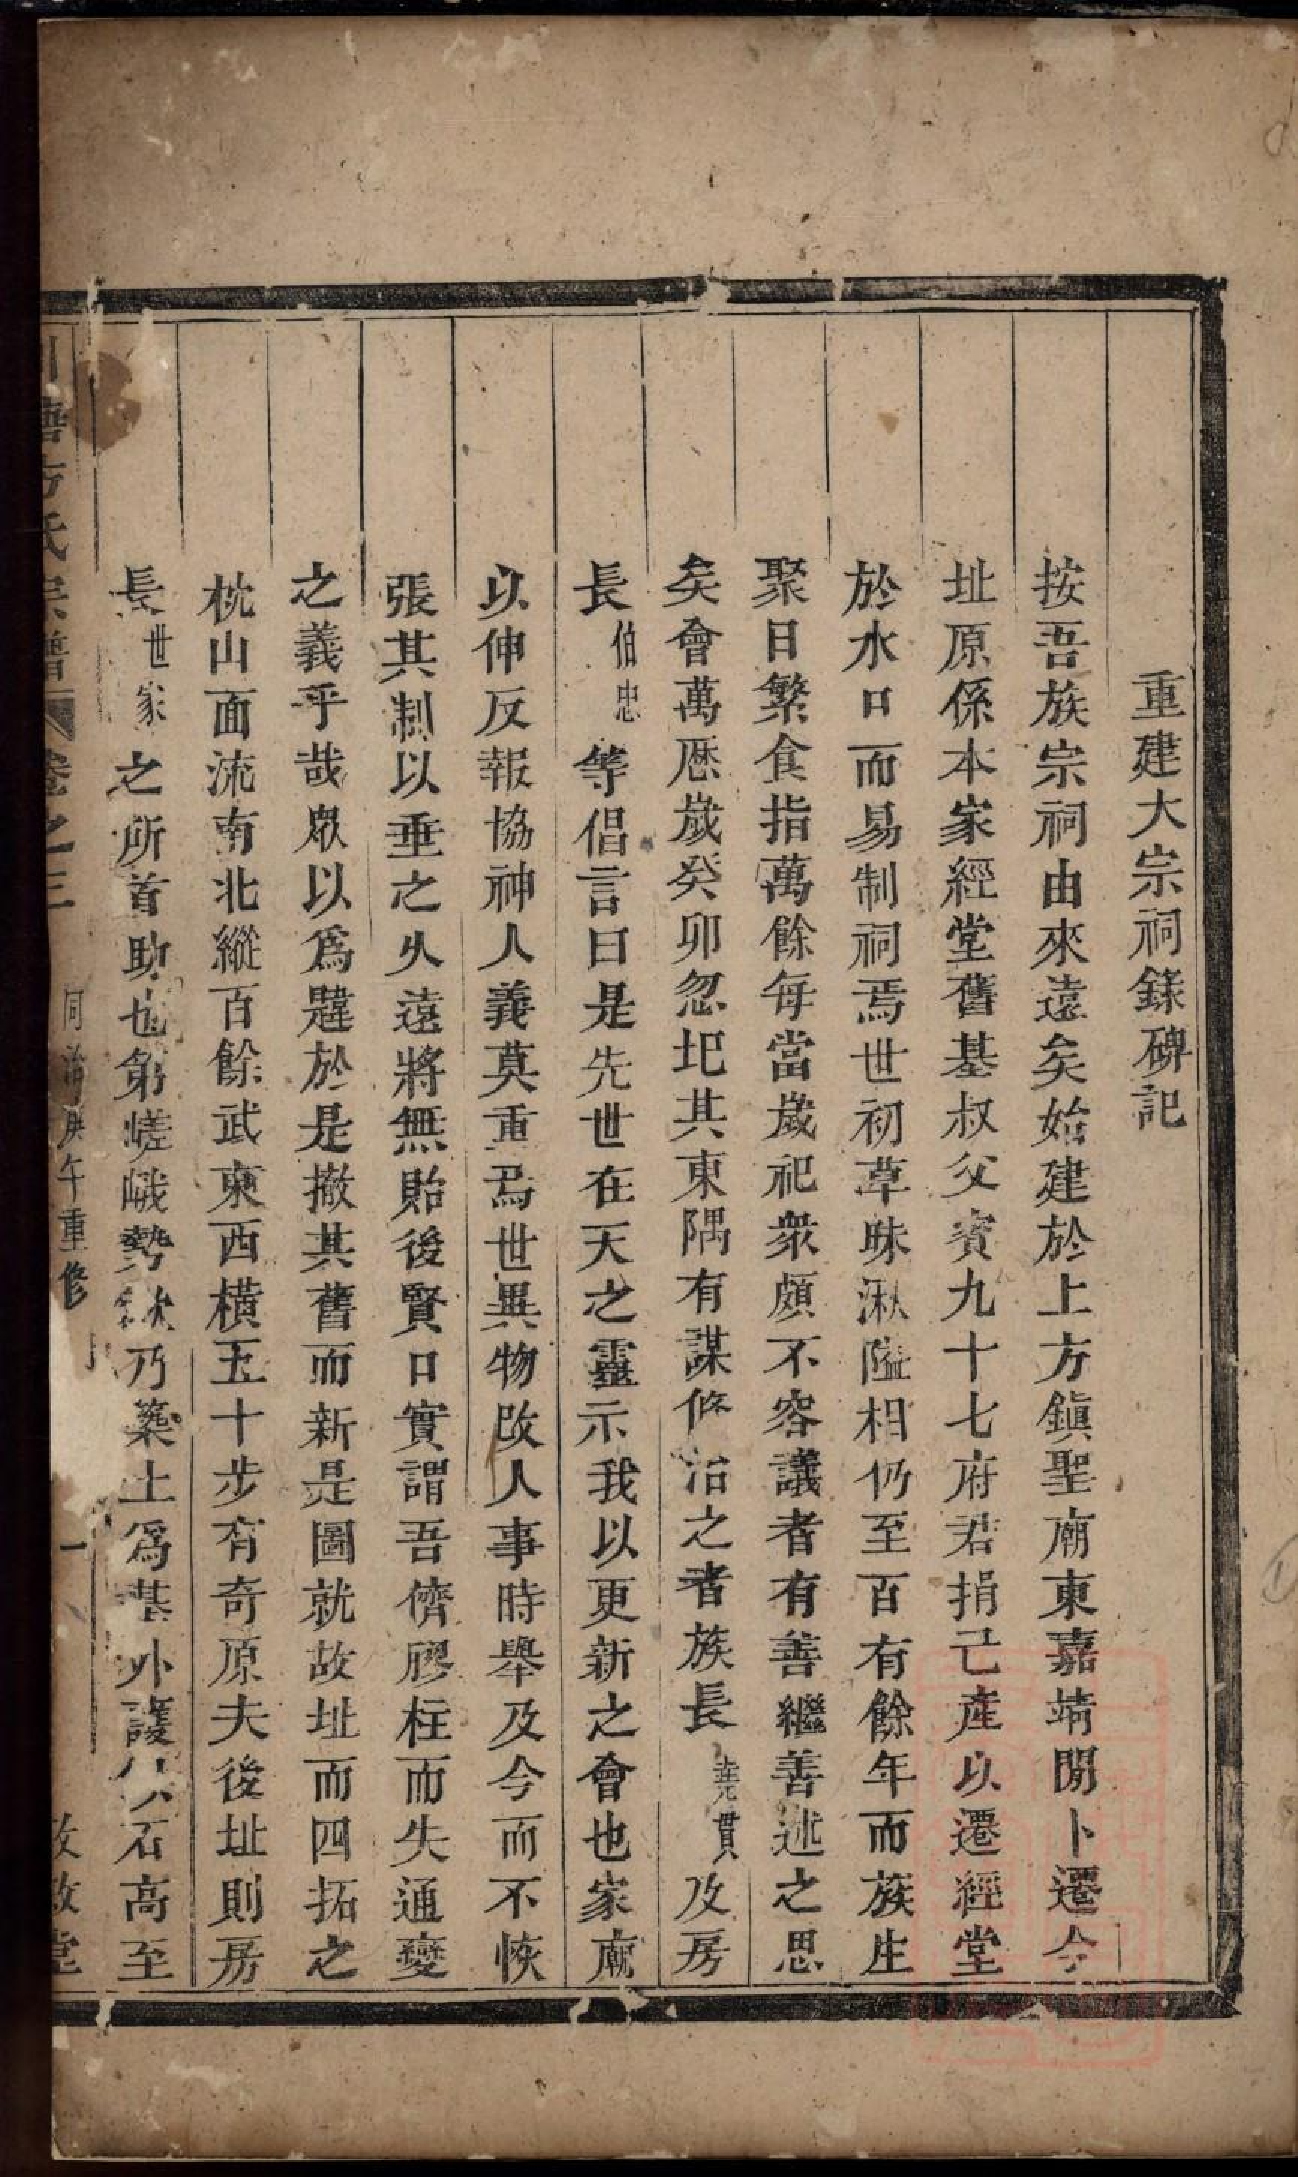 重建大宗祠錄碑記
按吾族宗祠由來遠矣始建於上方鎮聖廟東嘉靖閒卜遷今
址原係本家經堂舊基叔父賓九十七府君捐己產以遷經堂
於水口而易制祠焉世初草昧湫隘相仍至百有餘年而族生
聚日繁食指萬餘每當歲祀衆頗不容議者有善繼善述之思
矣會萬厯歲癸卯忽圯其東隅有謀修治之者族長堯貫及房
長伯忠等倡言曰是先世在天之靈示我以更新之會也家廟
以伸反報協神人義莫重焉世異物改人事時舉及今而不恢
張其制以垂之久遠將無貽後賢口實謂吾儕膠柱而失通變
之義乎哉衆以爲韙於是撤其舊而新是圖就故址而四拓之
枕山面流南北縱百餘武東西橫五十步有奇原夫後址則房
長世家之所首助也第嵯峨勢欹乃築土爲基外護以石高至
川唐方氏宗譜 卷之三 同治庚午重修 敬堂